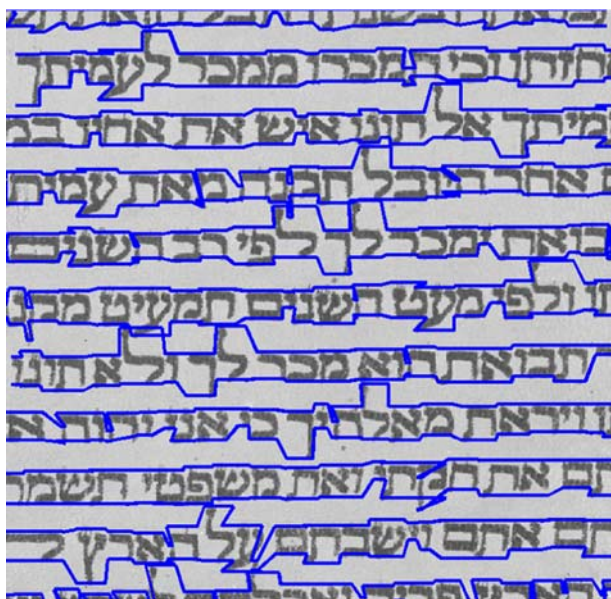 אחזתו וכי תמכרו ממכר לעמיתך
מיתך אל תונו איש את אחיו במ
ם אחר היובל תקנה מאת עמית
בואת ימכר לך לפי רב השנים
תו ולפי מעט השנים תמעיט מקנ
תבואת הוא מכר לך ולא תונו
ו ויראת מאלהיך כי אני יהוה א
תם את חקתי ואת משפטי תשמר
תם אתם וישבתם על הארץ ל